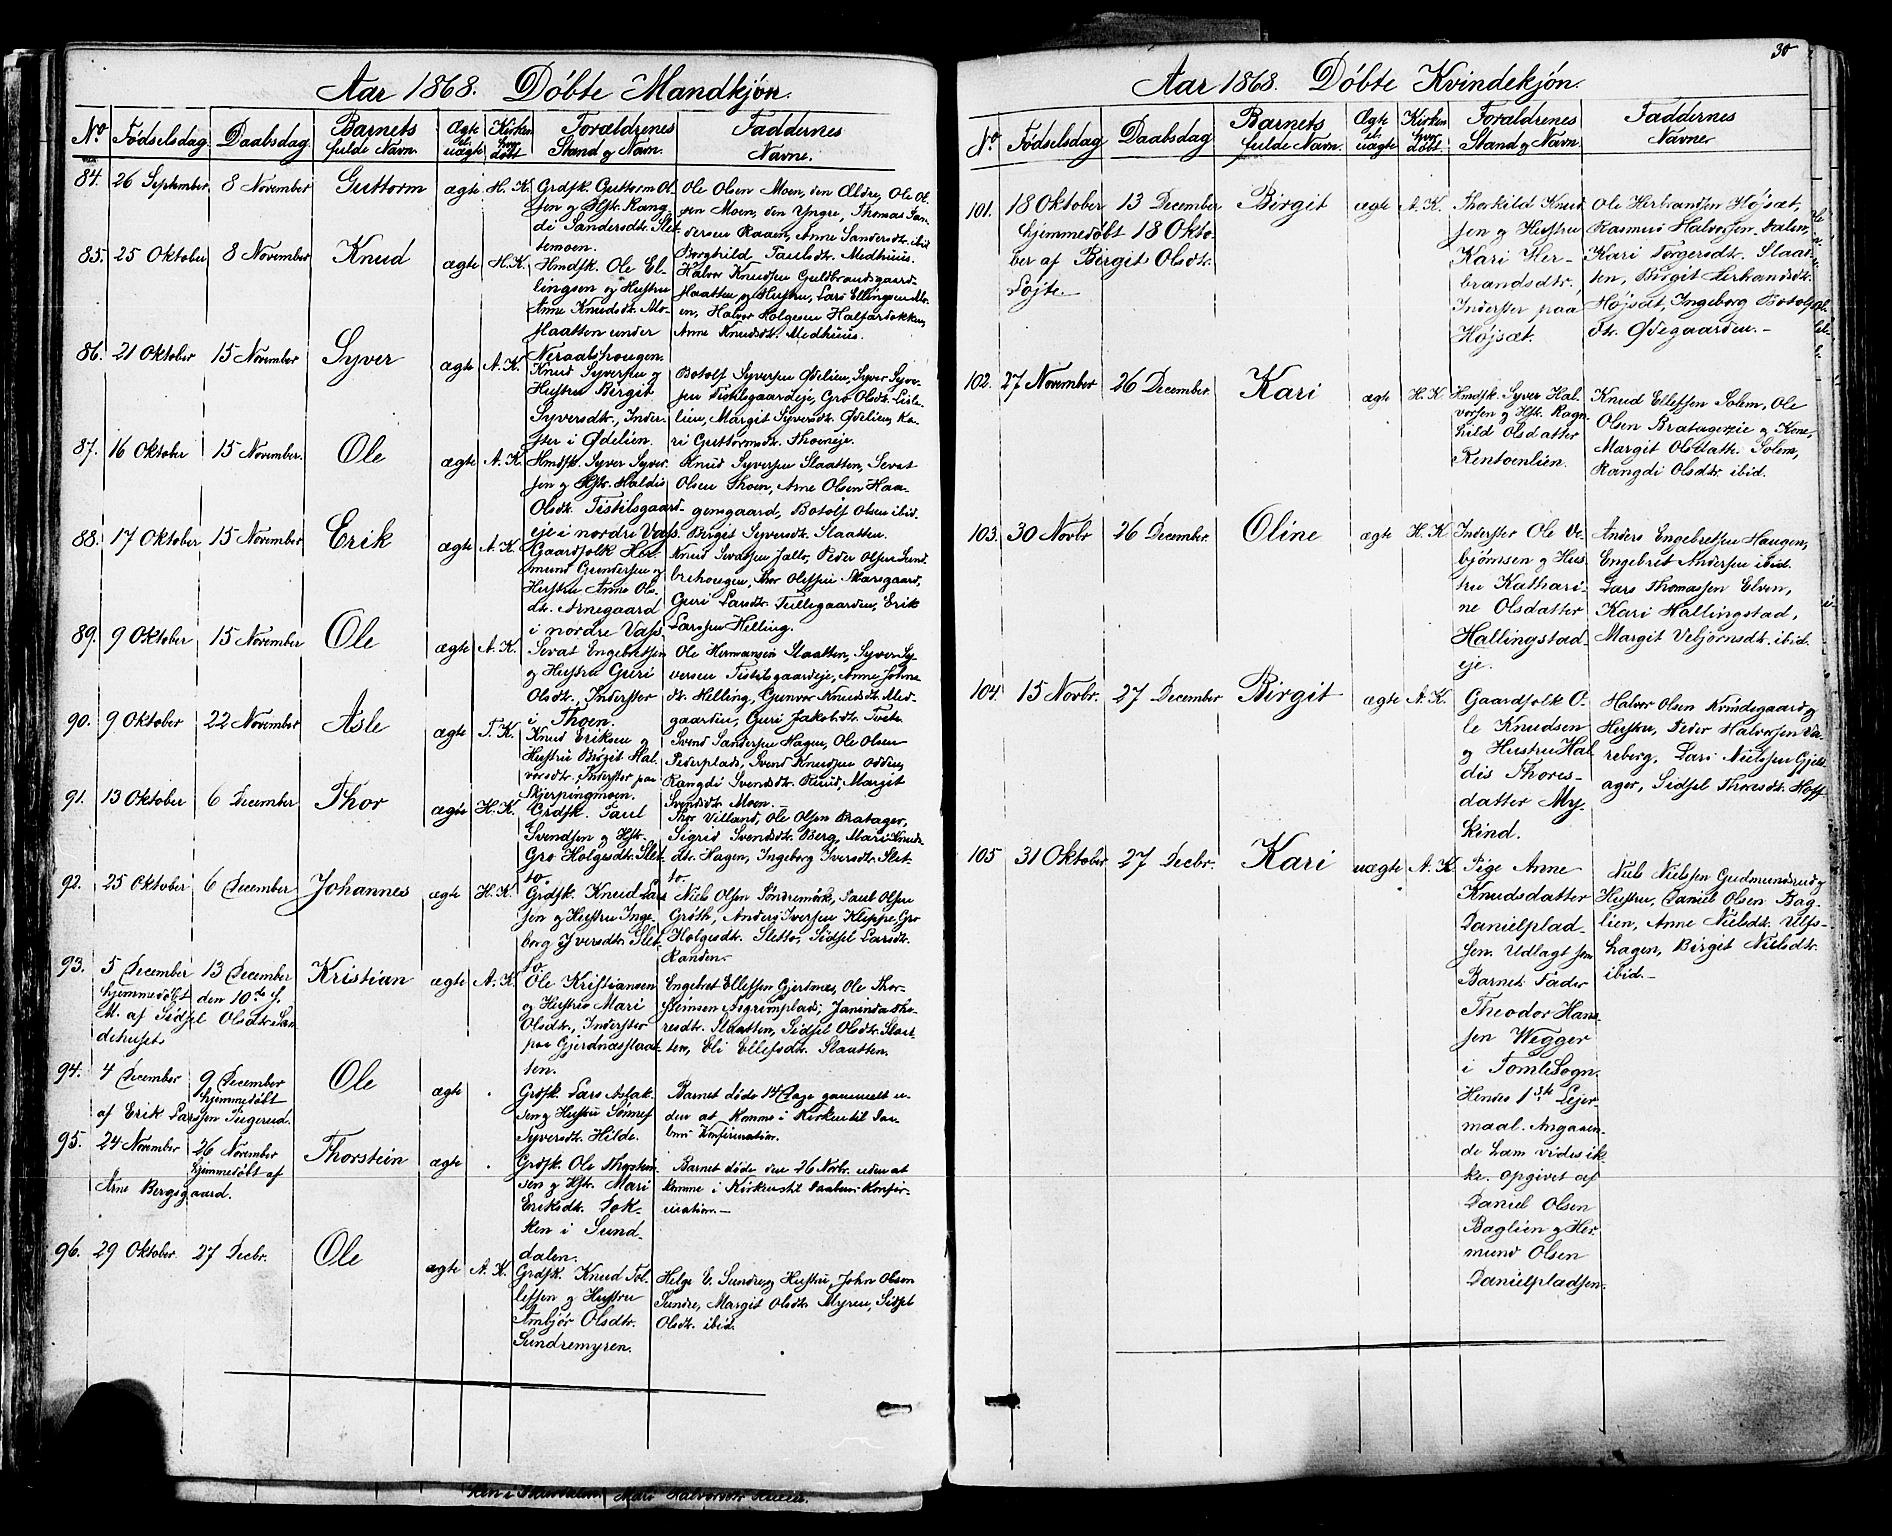 Aar 1868. Döbte Mandkjön.
No Födselsdag Daabsdag Barnets fulde Navn. Ægte el. uægte Kirken hvor döbt Forældrenes Stand og Navn. Faddernes Navne.
84. 26 September 8 November Guttorm ægte H. K.
Grdfk. Guttorm Ol-
sen og Hstr. Rang-
di Sandersdtr. Slet-
temoen.
Ole Olsen Moen, den Ældre, Ole Ol-
sen Moen, den Yngre, Thomas San-
dersen Raaen, Anne Sandersdtr. ibid
Borghild Paulsdtr. Medhuus.
85. 25 Oktober 8 November Knud ægte H. K.
Hmdfk. Ole El-
lingsen og Hustru
Anne Knudsdtr. Mo-
haatten under
Neraalshougen.
Halvor Knudsen Guldbrandsgaard-
Haatten og Hustru, Lars Ellingsen
en, Halvor Holgesen Halfardokken,
Anne Knudsdtr. Medhuus.
86. 21 Oktober 15 November Syver ægte A. K.
Knud Syversen og
Hustru Birgit
Syversdtr., Inder-
ster i Ødelien.
Botolf Syversen Ødelien, Syver Syver-
sen Tistilsgaardeje, Gro Olsdtr. Lisle-
lien, Margit Syversdtr. Ødelien, Ka-
ri Guttormsdtr. Thoeneje.
87. 16 Oktober 15 November. Ole ægte A. K.
Hmdfk. Syver Syver-
sen og Hstr. Haldis
Olsdtr. Tistilsgaard-
eje i nordre Vats.
Knud Syversen Slaatten, Sevat
Olsen Thoen, Arne Olsen Haa-
gensgaard, Botolf Olsen ibid
Birgit Syversdtr. Slaatten.
88. 17 Oktober 15 November Erik ægte A. K.
Gaardfolk Her-
mund Gundersen og
Hustru Anne Ols-
dtr. Arnegaard
i nordre Vats.
Knud Sevatsen Jallo, Peder Olsen Sund-
brehougen, Thor Olessen Skarsgaard,
Guri Larsdtr. Tullegaarden, Erik
Larssen Helling.
89. 9 Oktober 15 November Ole ægte A. K.
Sevat Engebretsen
og Hustru Guri
Olsdtr. Inderster
i Thoen.
Ole Hermansen Slaatten, Syver Sy-
versen Tistilsgaardeje, Anne Johns-
dtr. Helling, Gunvor Knudsdtr. Med-
gaarden, Guri Jakobsdtr. Tveto.
90. 9 Oktober 22 November Asle ægte T. K.
Knud Eriksen og
Hustru Birgit Hal-
vorsdtr. Inderster paa
Skjerpingmoen.
Svend Sandersen Hagen, Ole Olsen
Pedersplads, Svend Knudsen Odden,
Rangdi Svendsdtr. Ruud, Margit
Svendsdtr. Moen.
91. 13 Oktober 6 December Thor ægte H. K.
Grdfk. Paul
Svendsen og Hstr.
Gro Holgesdtr. Slet-
to.
Thor Villand, Ole Olsen Bratager,
Sigrid Svendsdtr. Berg, Mari Knuds-
dtr. Hagen, Ingeborg Iversdtr. Slet-
to.
92. 25 Oktober 6 December Johannes ægte H. K.
Grdfk. Knud Lars-
sen og Hustru Inge-
borg Iversdtr. Slet-
to.
Niels Olsen Söndremörk, Paul Olsen
Gröth, Anders Iversen Kleppe, Gro
Holgesdtr. Sletto, Sidsel Larsdtr.
Randen.
93. 5 December 13 December Kristian ægte A. K.
hjemmedöbt den 10de s.
M. af Sidsel Olsdtr. San-
dehuset.
Ole Kristiansen
og Hustru Mari
Olsdtr., Inderster
paa Gjerdnæsslaat-
ten.
Engebret Ellefsen Gjerdnæs, Ole Thor-
stensen Asgrimsplads, Janinda Tho-
resdtr. Slaatten, Sidsel Olsdtr. Slaat-
ten, Eli Ellefsdtr. Slaatten.
94. 4 December 9 December Ole ægte .
hjemmedöbt
af Erik Larssen Tuperud.
Grdfk. Lars Aslak-
sen og Hustru Sönnef
Syversdtr. Hilde.
Barnet döde 14 Dage gammelt u-
den at komme i Kirken til Daa-
bens Konfirmation.
95. 24 November 26 November Thorstein ægte .
hjemmedöbt af
Arne Bergsgaard.
Grdfk. Ole Thostein-
sen og Hstr. Mari
Eriksdtr. Dok-
ken i Sund-
dalen.
Barnet döde den 26 Novbr. uden at
komme i Kirken til Daabens Konfir-
mation.—
96. 29 Oktober. 27 Decbr. Ole ægte A. K.
Grdfk. Knud Tol-
lefsen og Hustru
Ambjör Olsdtr.
Sundremyren.
Helge E. Sundre og Hustru, John Olsen
Sundre, Margit Olsdtr. Myren, Sidsel
Olsdtr. ibid.
30
Aar 1868. Döbte Kvindekjön.
No Födselsdag Daabsdag Barnets fulde Navn. Ægte el. uægte Kirken hvor döbt. Forældrenes Stand og Navn Faddernes Navne
101. 18 Oktober 13 December Birgit ægte A. K.
hjemmedöbt 18 Okto-
ber af Bergit Olsdtr.
Löjte.
Thorkild Knud-
sen og Hustru
Kari Her-
brandsdtr.,
Inderster paa
Höjsæt.
Ole Herbrandsen Höjsæt,
Rasmus Halvorsen Dalen,
Kari Torgersdtr. Slaat-
ten, Birgit Herbrandsdtr.
Höjsæt, Ingeborg Botolfs-
dtr. Ødegaarden.—
102. 27 November 26 December. Kari ægte H. K.
Hmdfk. Syver Hal-
vorsen og Hstr. Ragn-
hild Olsdatter
Rentoenlien.
Knud Ellefsen Solem, Ole
Olsen Bratagereie og Kone,
Margit Olsdatr. Solem,
Rangdi Olsdtr. ibid.
103. 30 Novbr 26 December. Oline ægte H. K.
Inderster Ole Ve-
björnsen og Hus-
tru Kathari-
ne Olsdatter
Hallingstad-
eje.
Anders Engebretsen Haugen,
Engebret Andersen ibid.
Lars Thomassen Elven,
Kari Hallingstad,
Margit Vebjörnsdtr. ibid.
104. 15 Novbr. 27 December Birgit ægte A. K.
Gaardfolk O-
le Knudsen
og Hustru Hal-
dis Thores-
datter My-
kind.
Halvor Olsen Kvindegaard og
Hustru, Peder Halvorsen Va-
reberg, Lars Nielssen Gjel-
ager, Sidsel Thoresdtr. Hoff.
105 31 Oktober 27 Decbr. Kari uægte A. K.
Pige Anne
Knudsdatter
Danielplad-
sen. Udlagt som
Barnets Fader
Theodor Han-
sen Wegger
i Tomlesogn.
Hendes 1ste Lejer-
maal. Angaaen-
de Ham vides ik-
ke. Opgivet af
Daniel Olsen
Baglien og Her-
mund Olsen
Danielpladsen.
Niels Nielsen Gudmundsrud og
Hustru, Daniel Olsen Bag-
lien, Anne Nielsdtr. Ulfs-
hagen, Birgit Nielsdtr.
ibid.—